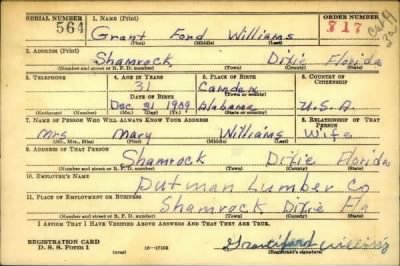 SERIAL NUMBER 1. NAME (Print) ORDER NUMBER
564 Grant Ford Williams 817
(First) (Middle) (Last)
2. ADDRESS (Print)
Shamrock, Dixie Florida
(Number and street or R. F. D. number) (Town) (County) (State)
3. TELEPHONE 4. AGE IN YEARS 5. PLACE OF BIRTH 6. COUNTRY OF CITIZENSHIP
31 Camden
DATE OF BIRTH (Town or county)
Dec 31 1909 Alabama U.S.A.
(Exchange) (Number) (Mo.) (Day) (Yr.) (State or country)
7. NAME OF PERSON WHO WILL ALWAYS KNOW YOUR ADDRESS 8. RELATIONSHIP OF THAT PERSON
Mrs Mary Williams Wife
(Mr., Mrs., Miss) (First) (Middle) (Last)
9. ADDRESS OF THAT PERSON
Shamrock Dixie Florida
(Number and street or R. F. D. number) (Town) (County) (State)
10. EMPLOYER'S NAME
Putman Lumber Co
11. PLACE OF EMPLOYMENT OR BUSINESS
Shamrock Dixie Fla
(Number and street or R. F. D. number) (Town) (County) (State)
I AFFIRM THAT I HAVE VERIFIED ABOVE ANSWERS AND THAT THEY ARE TRUE.
REGISTRATION CARD
D. S. S. Form 1 (over) 16-17105 (Registrant's signature)